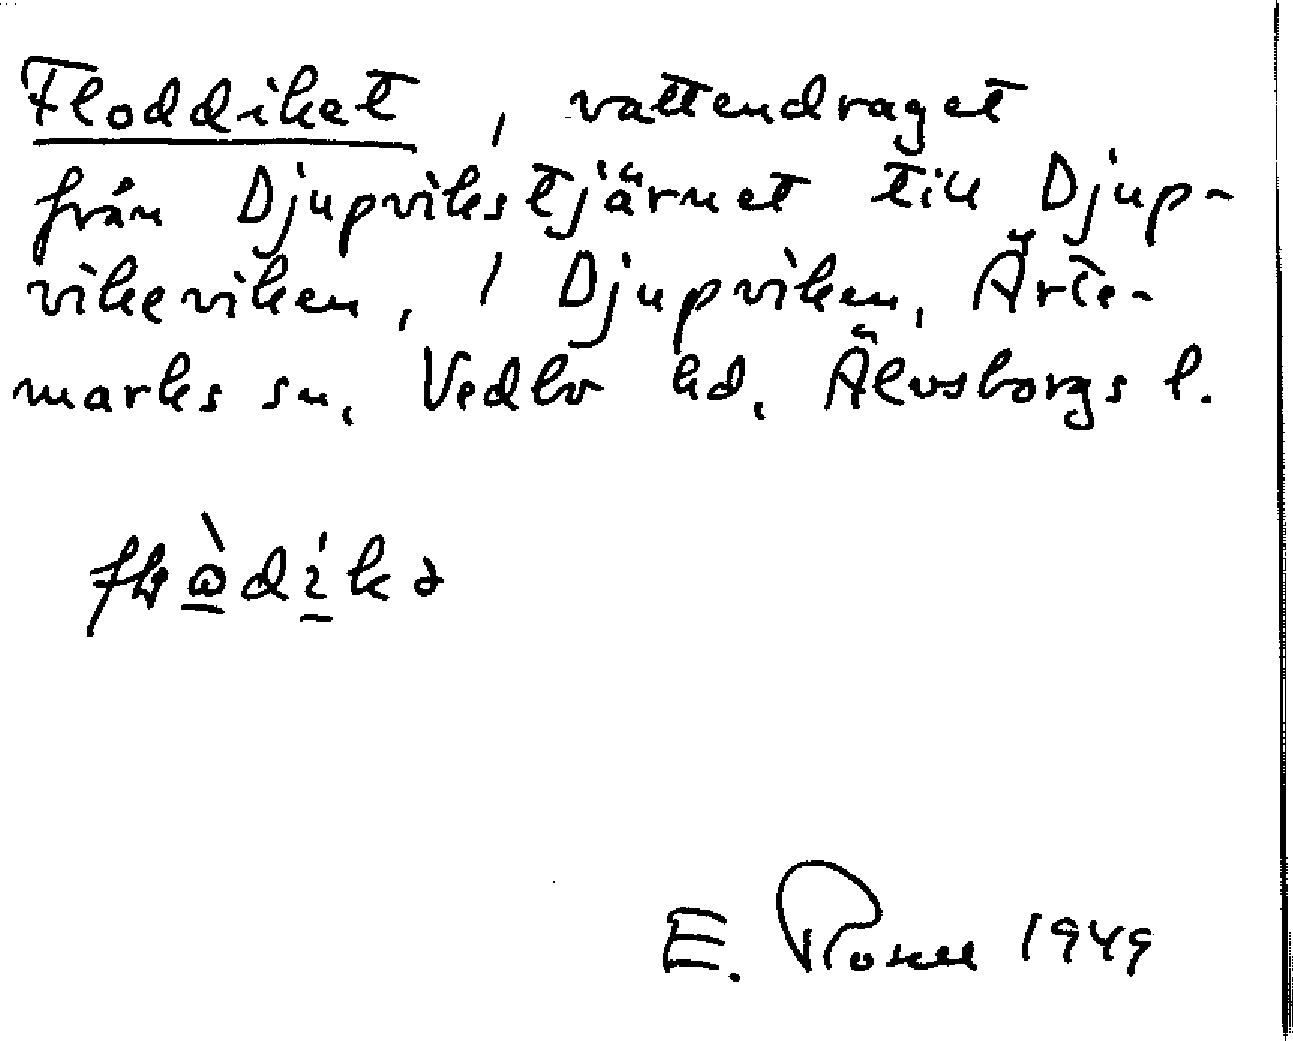 Floddiket, vattendraget
från Djupvikstjärnet till Djup-
vikeviken, i Djupviken, Ärte-
marks sn, Vedbo hd, Älvsborgs l.
E. Rosell 1949